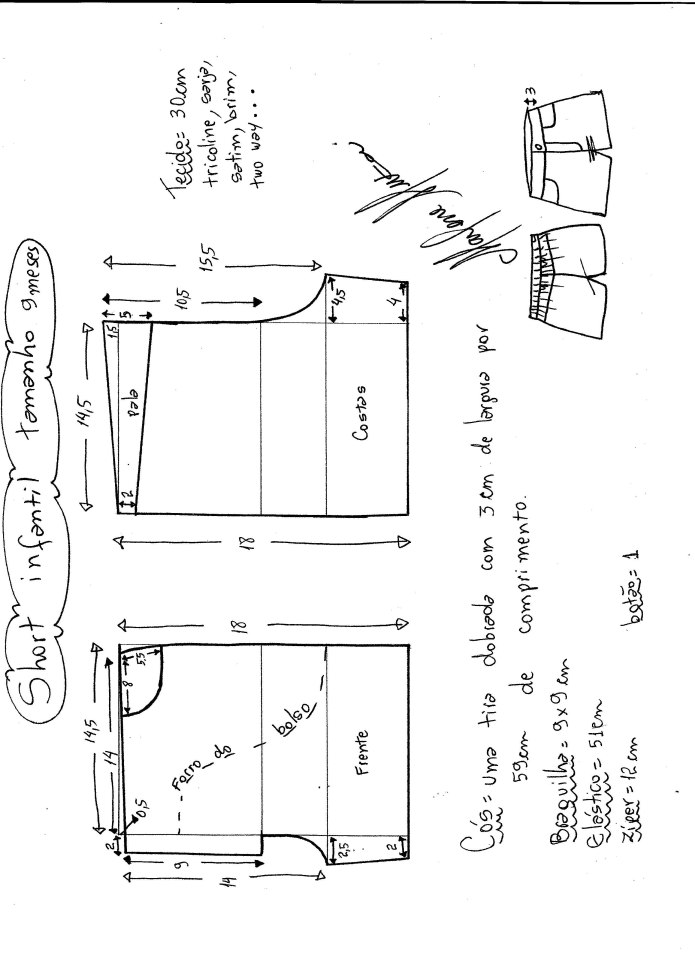 Short infantil tamanho 9 meses
Tecido= 30cm
tricoline, sarja,
satim, brim,
two way...
14,5
14
2
0,5
8
5,5
9
14
18
Forro do bolso
Frente
2,5
2
14,5
1,5
5
2
pala
10,5
15,5
18
Costas
4,5
4
Marlene
3
Cós= uma tira dobrada com 3 cm de largura por
59cm de comprimento.
Braguilha= 9x9 cm
Elástico= 51cm
Zíper= 12 cm
botão= 1